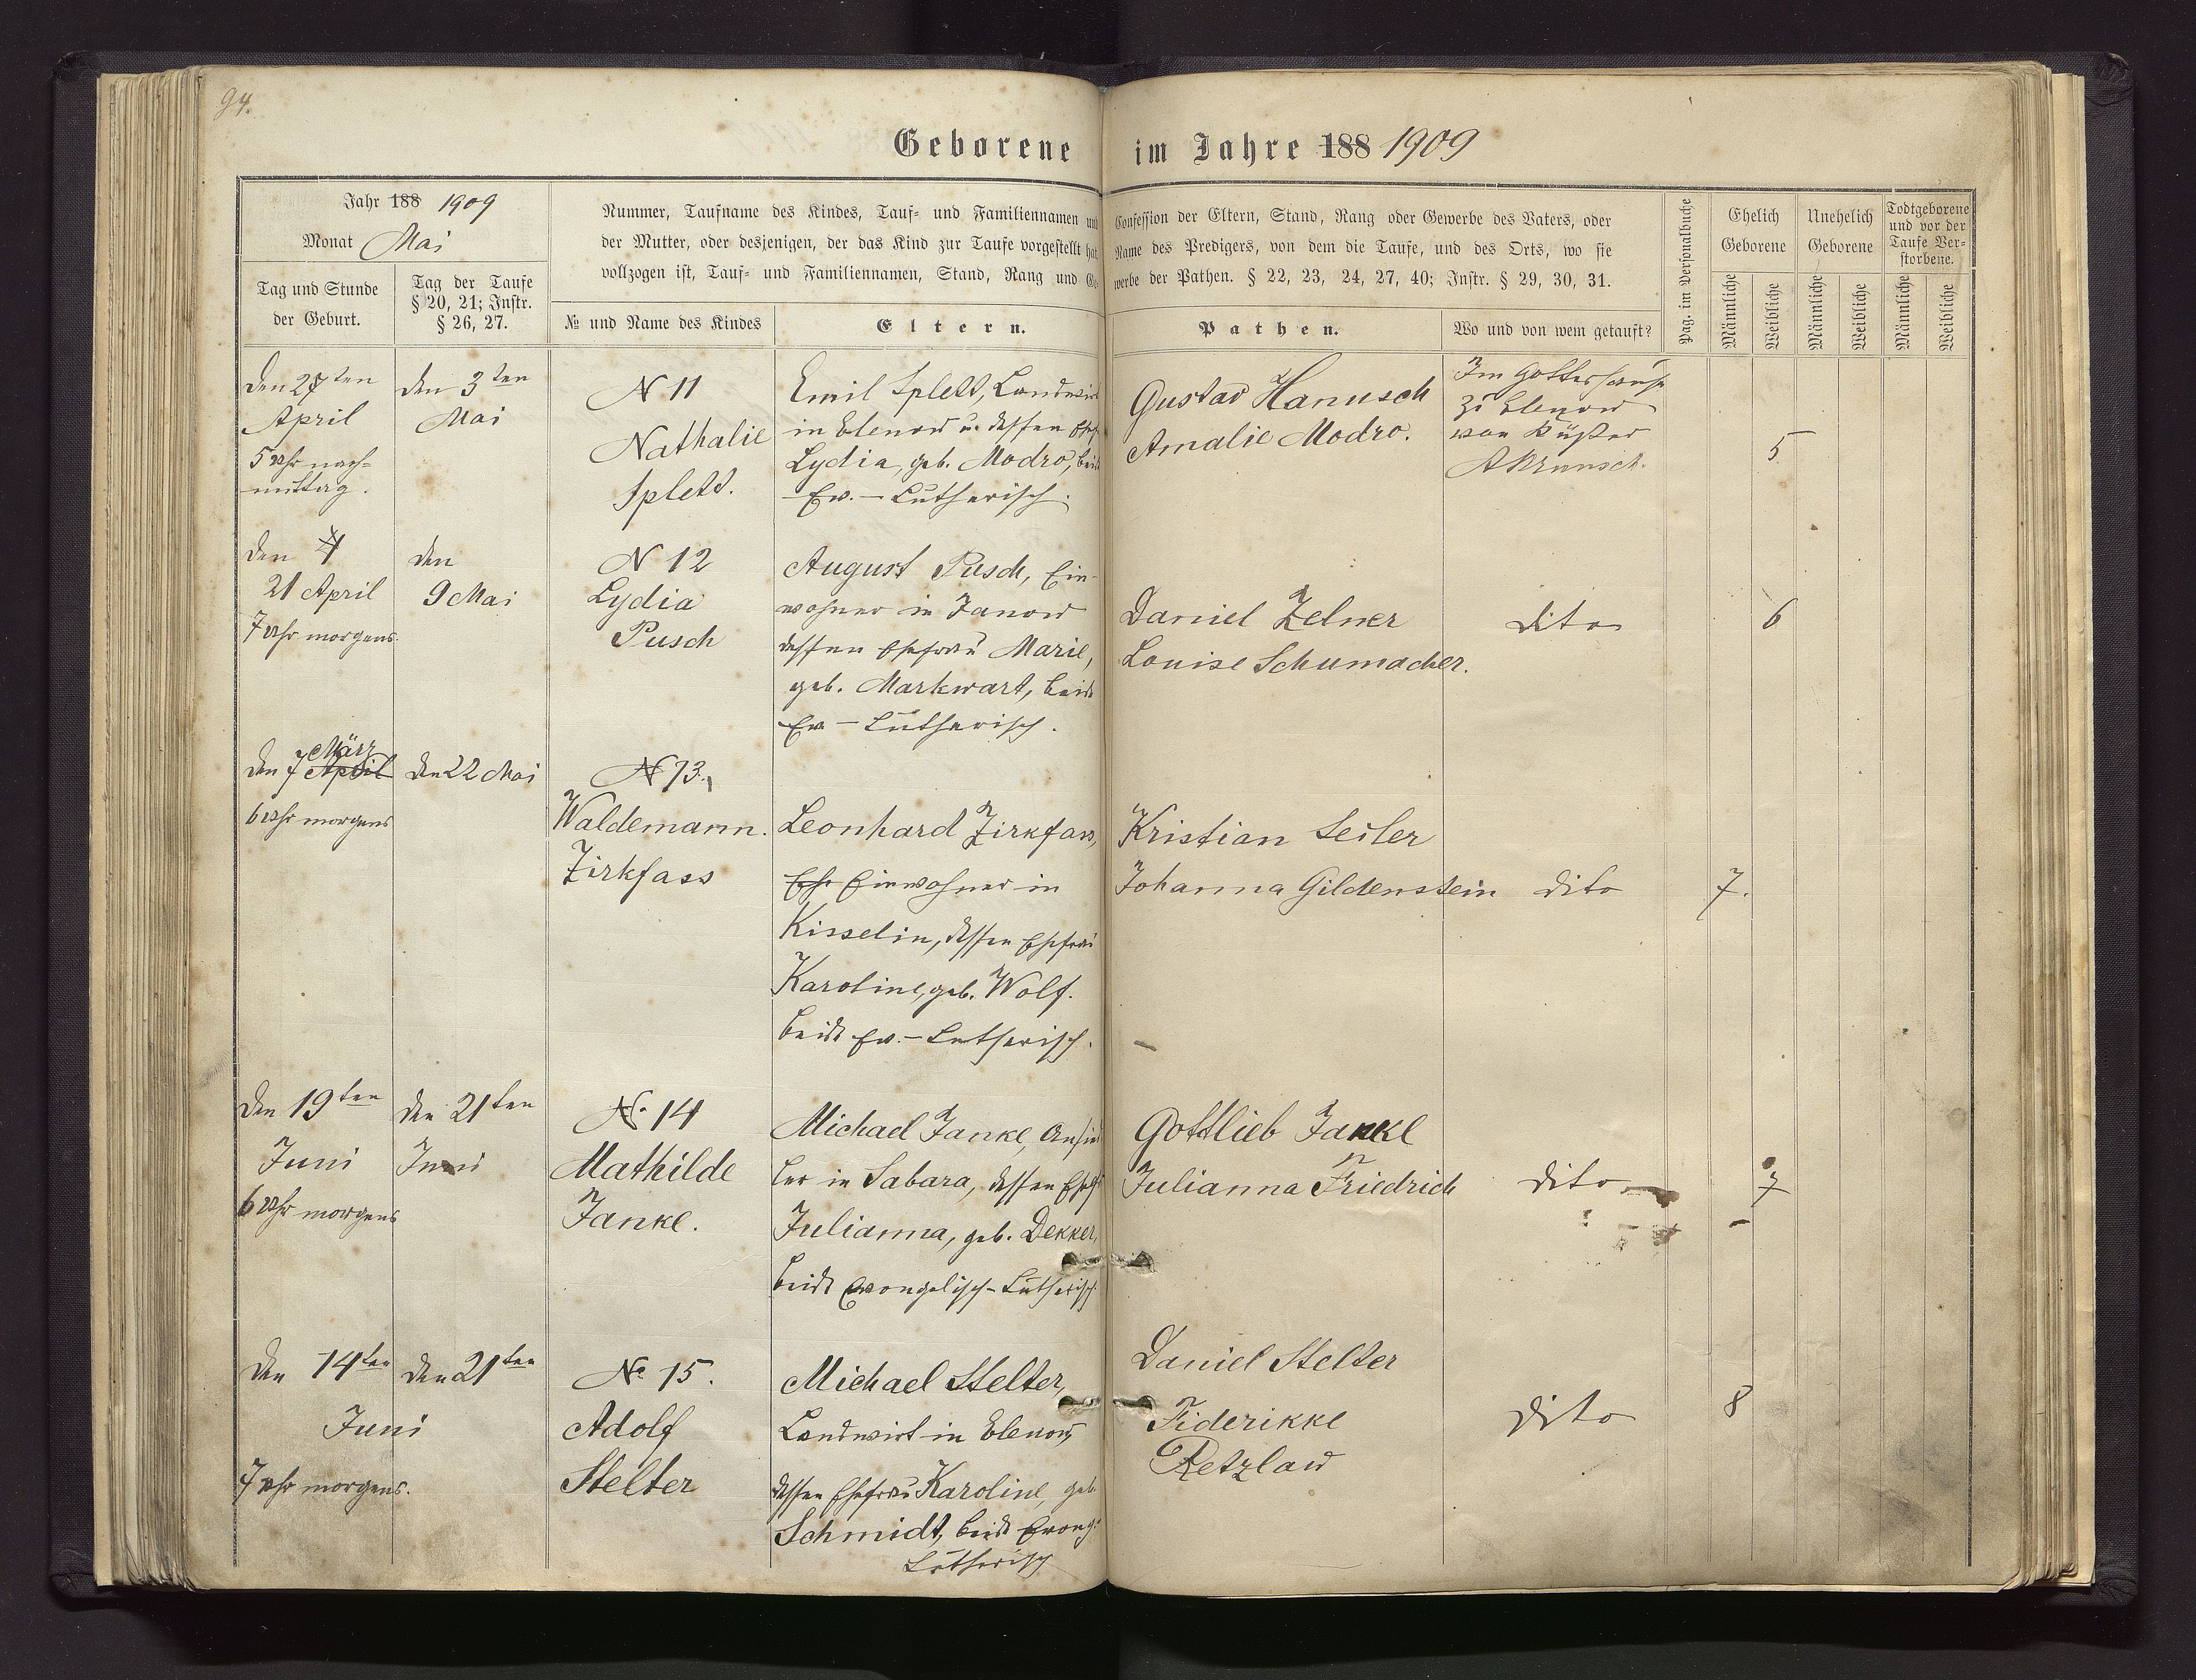 94.
Geborene im Jahre 188 1909
Jahr 188 1909
Monat Mai
Tag und Stunde
der Geburt.
Tag der Taufe
§ 20, 21; Instr.
§ 26, 27.
Nummer, Taufname des Kindes, Tauf- und Familiennamen und
der Mutter, oder desjenigen, der das Kind zur Taufe vorgestellt hat
vollzogen ist, Tauf- und Familiennamen, Stand, Rang und Ge-
№ und Name des Kindes
Eltern.
Confession der Eltern, Stand, Rang oder Gewerbe des Vaters, oder
Name des Predigers, von dem die Taufe, und des Orts, wo sie
werbe der Pathen. § 22, 23, 24, 27, 40; Instr. § 29, 30, 31.
Pathen.
Wo und von wem getauft?
Pag. im Personalbuche
Ehelich
Geborene
Unehelich
Geborene
Todtgeborene
und vor der
Taufe Ver-
storbene.
Männliche
Weibliche
Männliche
Weibliche
Männliche
Weibliche
Den 27ten
April
5 Uhr nach-
mittag.
den 3ten
Mai
N 11
Nathalie
Splett.
Emil Splett, Landwirt
in Elenow u. dessen Ehefr
Lydia, geb. Modro, beide
Ev.-Lutherisch.
Gustav Hanusch
Amalie Modro.
Im Gotteshause
zu Elenow
von Küster
5
Den
21 April
7 Uhr morgens
den
9 Mai
N 12
Lydia
Pusch
August Pusch, Ein-
wohner in Janow
dessen Ehefrau Marie,
geb. Markwart, beide
Ev-Lutherisch.
Daniel Zelner
Louise Schumacher.
dito
6
März
Den 7 April
6 Uhr morgens
den 22 Mai
N 13.
Waldemann.
Zirkfass
Leonhard Zirkfass,
Ehe Einwohner in
Kisselin, dessen Ehefrau
Karoline, geb. Wolf.
beide Ev.-Lutherisch.
Kristian Seiler
Johanna Gildenstein
dito
7.
Den 19ten
Juni
6 Uhr morgens
den 21ten
Juni
N. 14
Mathilde
Janke.
Michael Janke, Ansied
ler in Sabara, dessen Ehefr
Julianna, geb. Dekker,
beide Evangelisch-Lutherisch
Gottlieb Jankl
Julianna Friedrich
dito
7
Den 14ten
Juni
7 Uhr morgens.
den 21ten
No 15.
Adolf
Stelter
Michael Stelter,
Landwirt in Elenow
dessen Ehefrau Karoline, geb.
Schmidt, beide Evang.
Lutherisch
Daniel Stelter
Fiderikke
Retzlaw
dito
8